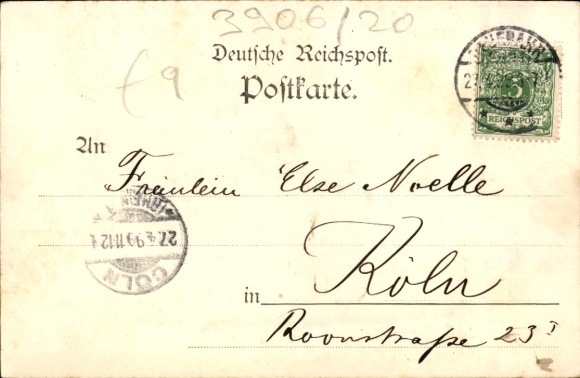 3906/20
€9
Deutsche Reichspost.
Postkarte.
5
REICHSPOST
An Fräulein Else Noelle
in Köln
Roonstraße 23 I
(RHEIN)
27.4.9 11-12
CÖLN